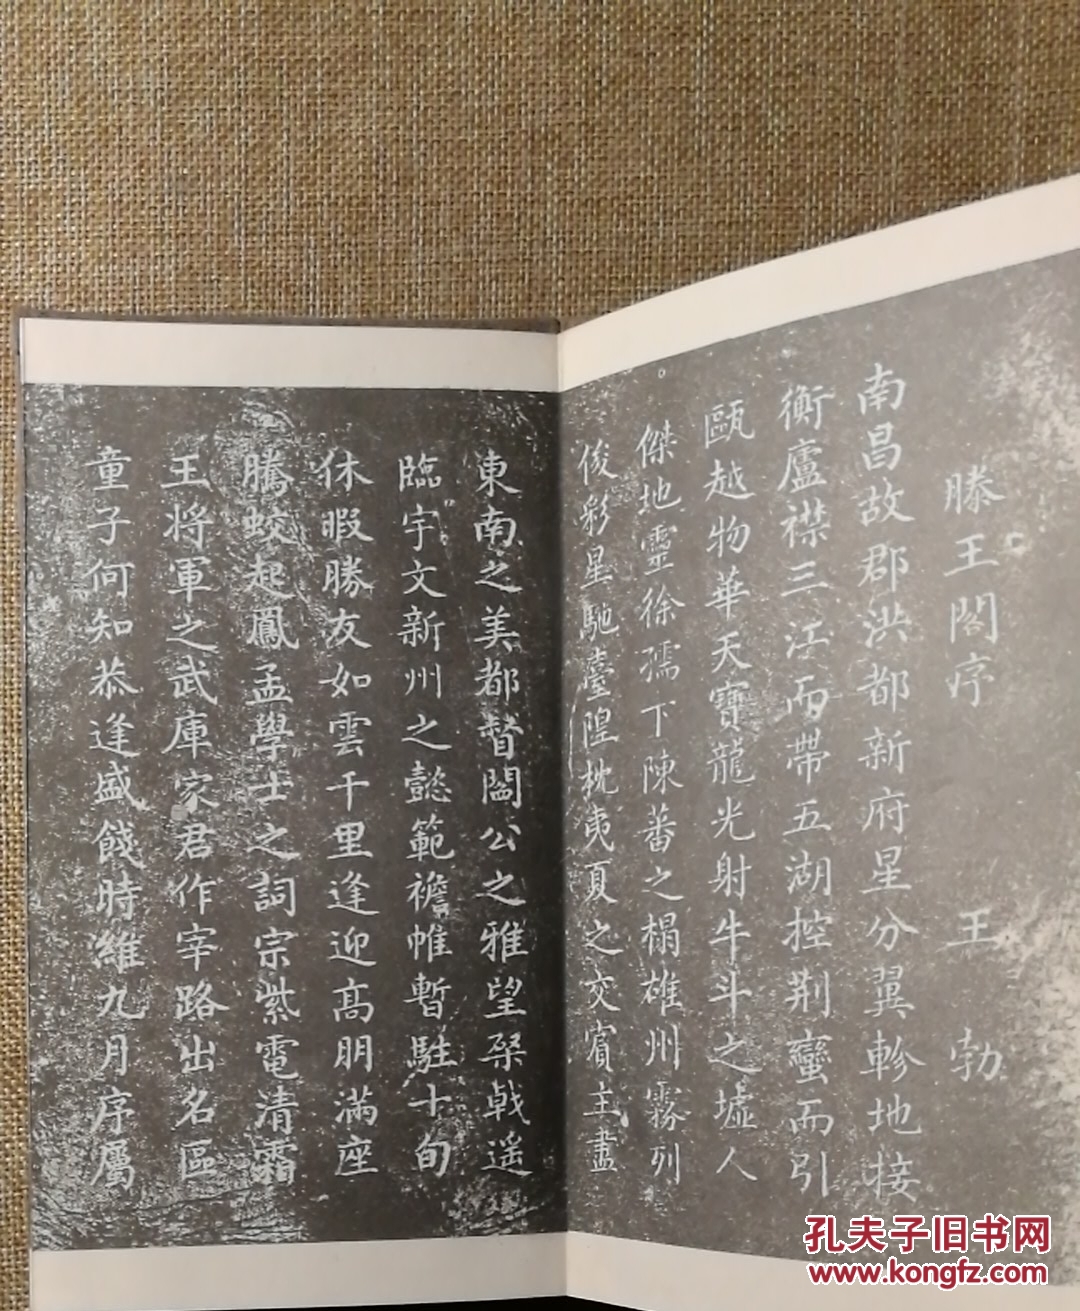 滕王閣序 王勃
南昌故郡洪都新府星分翼軫地接
衡廬襟三江而帶五湖控荆蠻而引
甌越物華天寶龍光射牛斗之墟人
傑地靈徐孺下陳蕃之榻雄州霧列
俊彩星馳臺隍枕夷夏之交賓主盡
東南之美都督閻公之雅望棨戟遥
臨宇文新州之懿範襜帷暫駐十旬
休暇勝友如雲千里逢迎高朋滿座
騰蛟起鳳孟學士之詞宗紫電清霜
王將軍之武庫家君作宰路出名區
童子何知恭逢盛餞時維九月序屬
孔夫子旧书网
www.kongfz.com